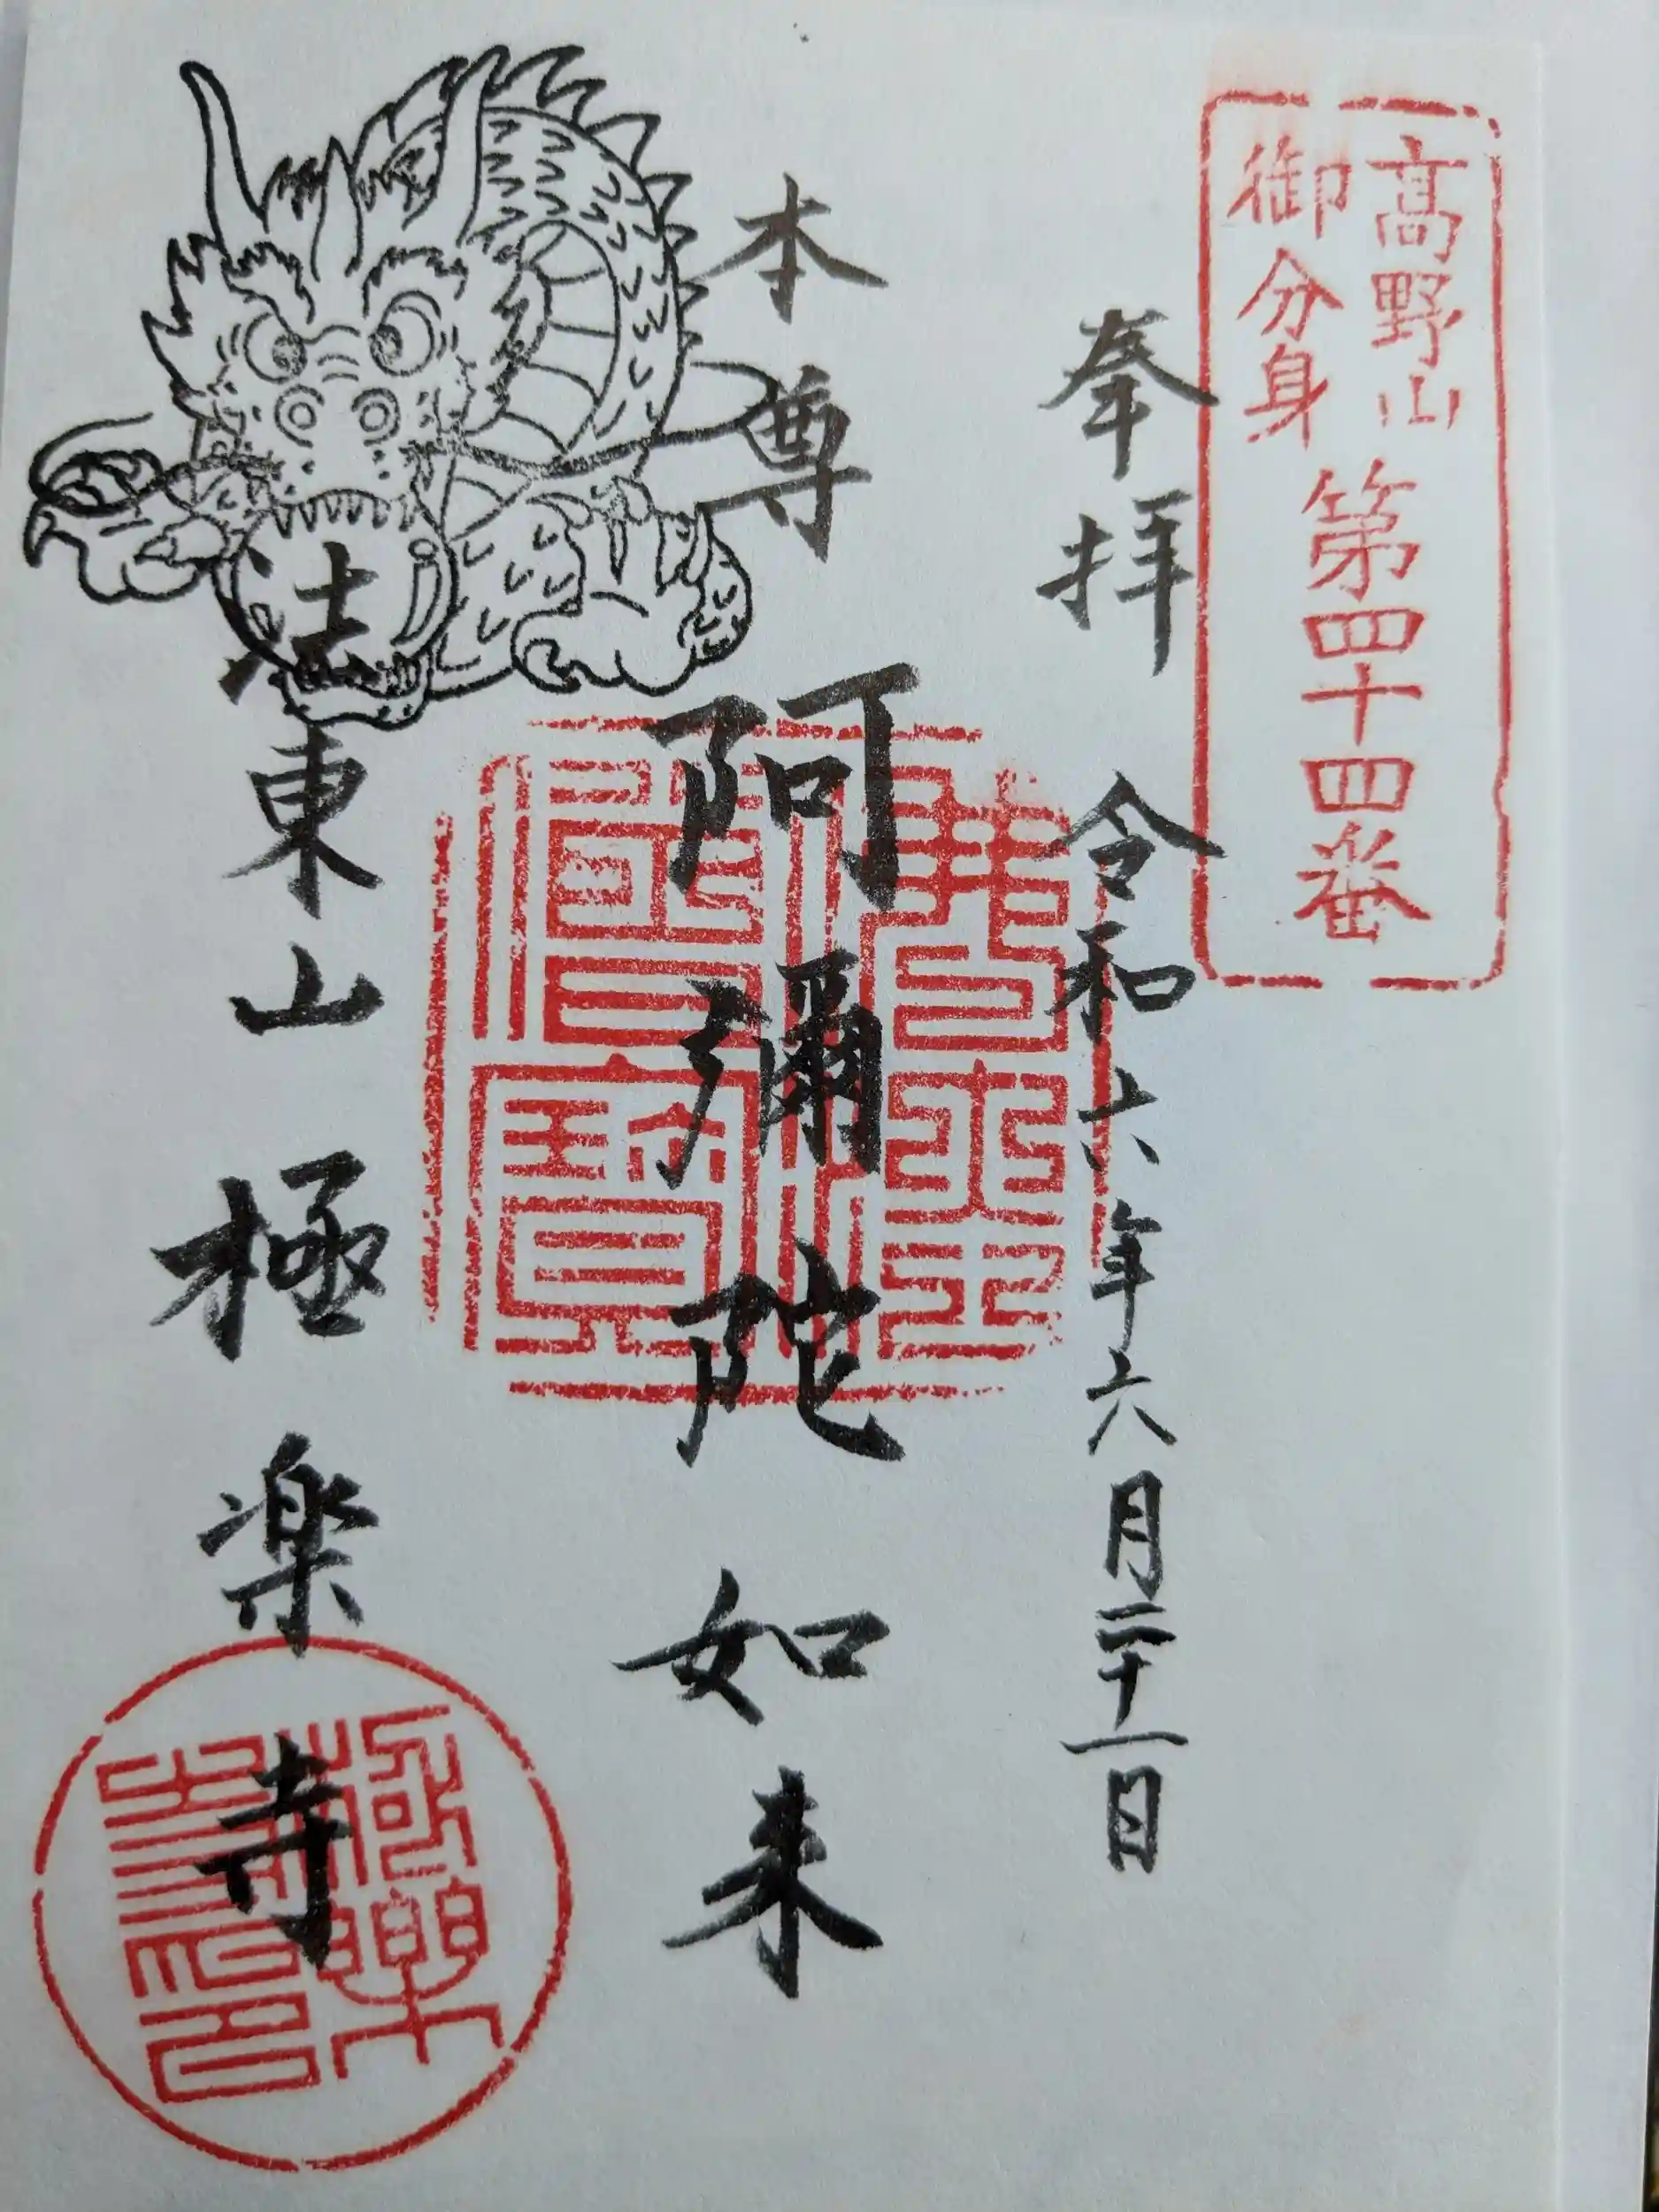 高野山
御分身
第四十四番
奉拝 令和六年六月二十一日
本尊 阿彌陀如来
法東山 極楽寺
極樂